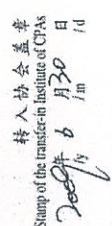 转入协会盖章
Stamp of the transfer-in Institute of CPAs
2009年 6 月30 日
/y /m /d